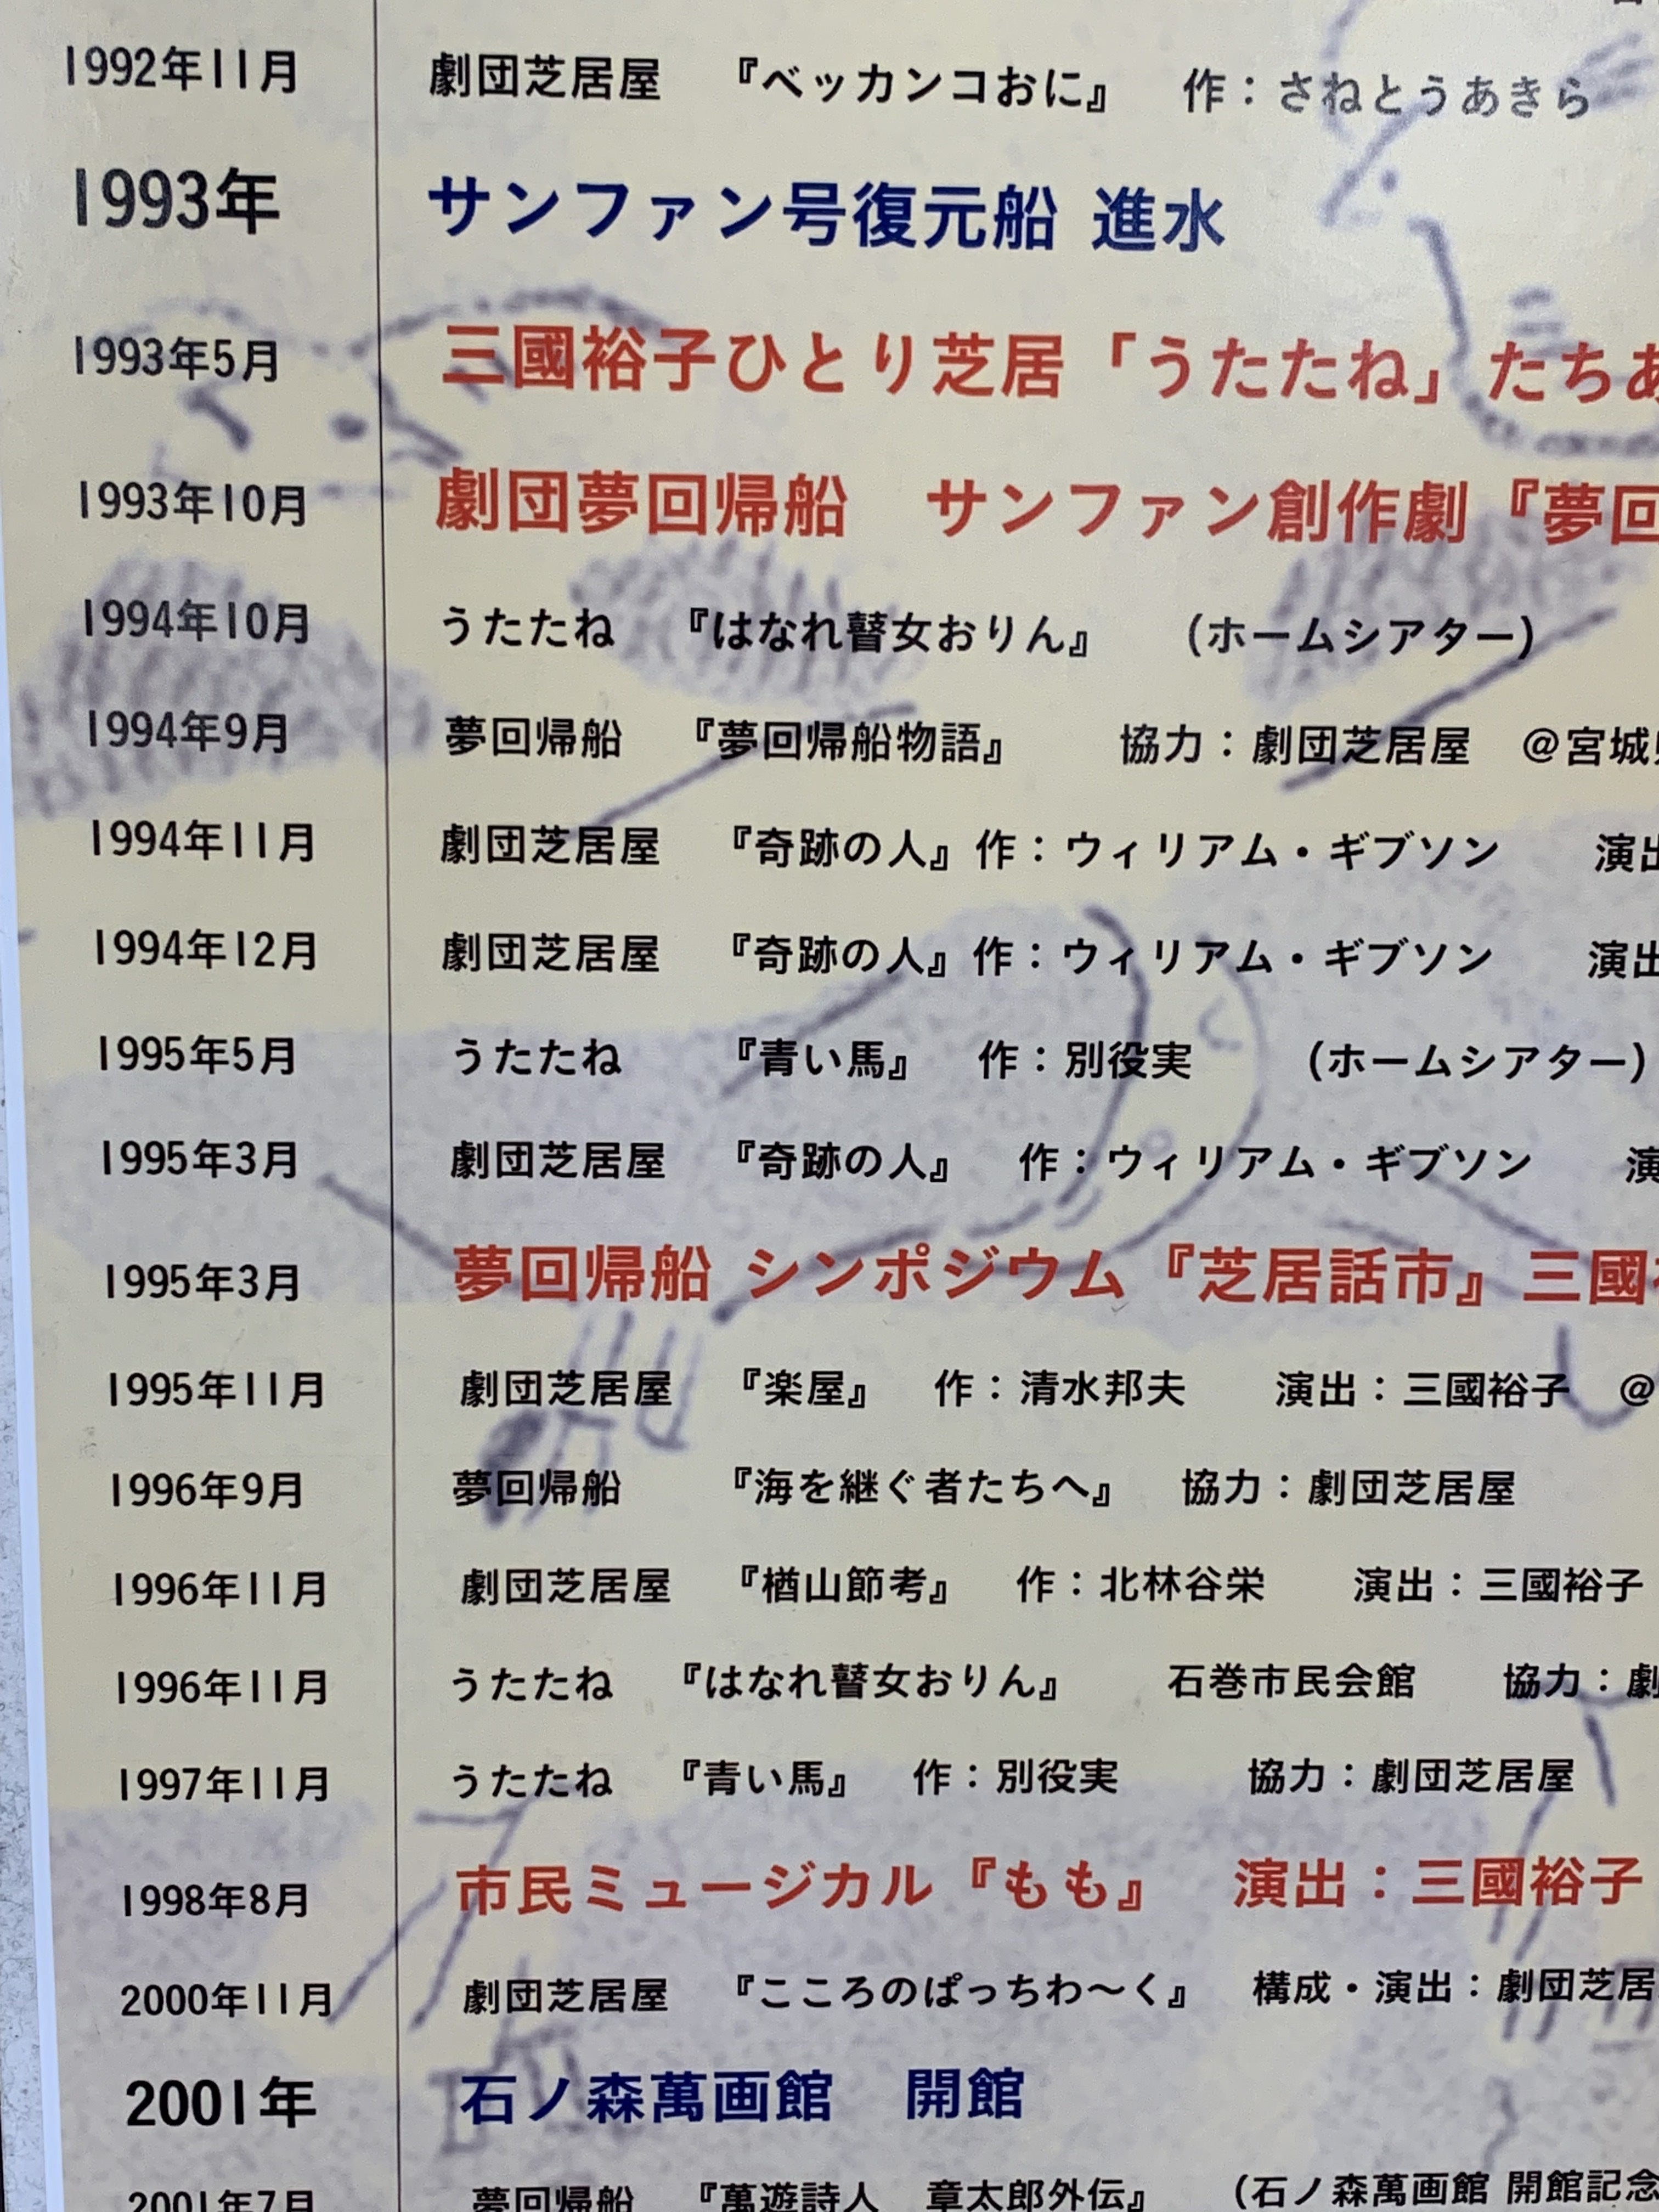 1992年11月 劇団芝居屋 『ベッカンコおに』 作：さねとうあきら
1993年 サンファン号復元船 進水
1993年5月 三國裕子ひとり芝居「うたたね」たちあ
1993年10月 劇団夢回帰船 サンファン創作劇『夢回
1994年10月 うたたね 『はなれ瞽女おりん』 (ホームシアター)
1994年9月 夢回帰船 『夢回帰船物語』 協力：劇団芝居屋 @宮城県
1994年11月 劇団芝居屋 『奇跡の人』作：ウィリアム・ギブソン 演出
1994年12月 劇団芝居屋 『奇跡の人』作：ウィリアム・ギブソン 演出
1995年5月 うたたね 『青い馬』 作：別役実 (ホームシアター)
1995年3月 劇団芝居屋 『奇跡の人』 作：ウィリアム・ギブソン 演
1995年3月 夢回帰船 シンポジウム『芝居話市』三國裕
1995年11月 劇団芝居屋 『楽屋』 作：清水邦夫 演出：三國裕子 @
1996年9月 夢回帰船 『海を継ぐ者たちへ』 協力：劇団芝居屋
1996年11月 劇団芝居屋 『楢山節考』 作：北林谷栄 演出：三國裕子
1996年11月 うたたね 『はなれ瞽女おりん』 石巻市民会館 協力：劇
1997年11月 うたたね 『青い馬』 作：別役実 協力：劇団芝居屋
1998年8月 市民ミュージカル『もも』 演出：三國裕子
2000年11月 劇団芝居屋 『こころのぱっちわ〜く』 構成・演出：劇団芝居
2001年 石ノ森萬画館 開館
2001年7月 夢回帰船 『萬遊詩人 章太郎外伝』 (石ノ森萬画館 開館記念